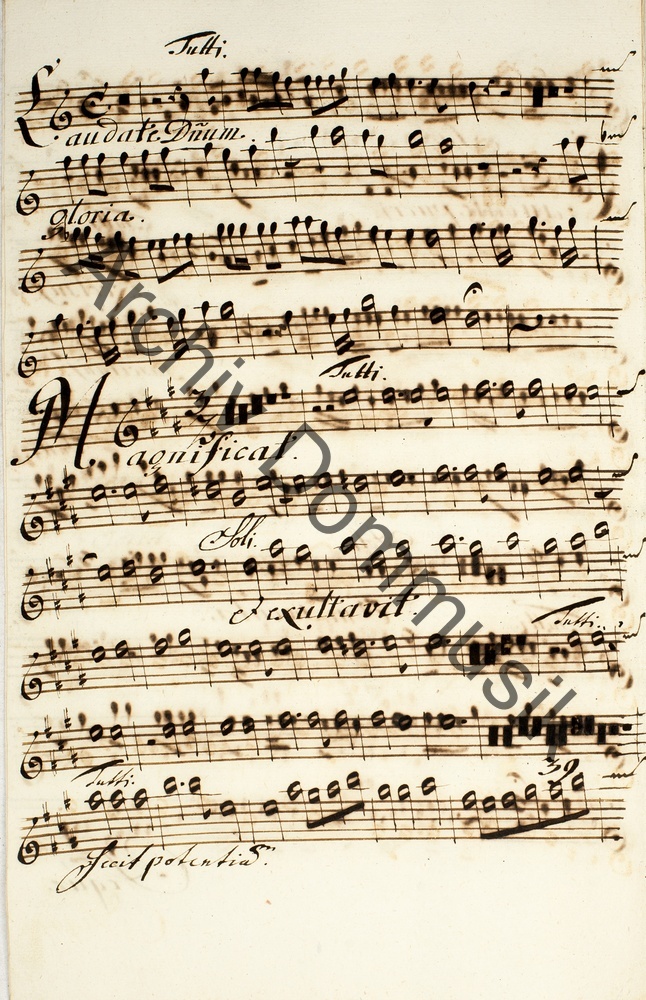 Tutti.
Laudate Dñum.
gloria.
Tutti.
Magnificat.
Soli.
et exultavit.
Tutti.
39
Tutti.
fecit potentiā.
Archiv Dommusik